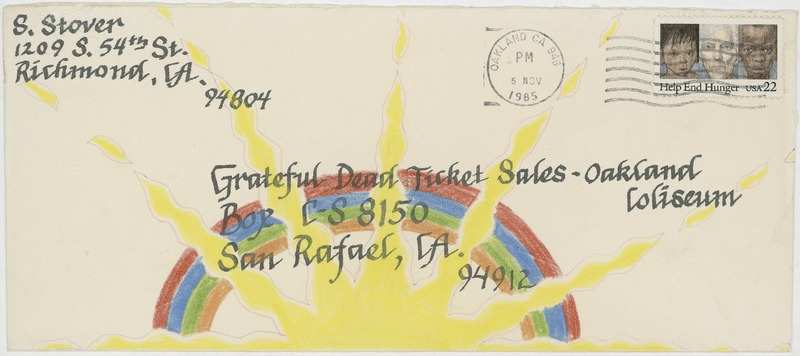 S. Stover
1209 S. 54th St.
Richmond, CA.
94804
OAKLAND CA 946
PM
5 NOV
1985
Help End Hunger USA 22
Grateful Dead Ticket Sales - Oakland
Coliseum
Box C-S 8150
San Rafael, CA.
94912